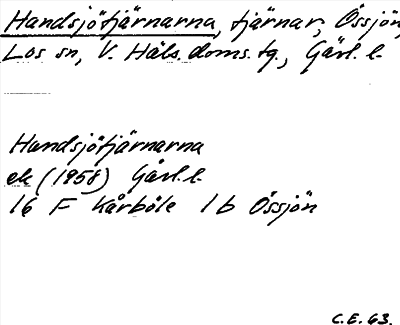 Handsjötjärnarna, tjärnar, Össjön,
Los sn, V. Häls. doms. tg., Gävl. l.
Handsjötjärnarna
ek (1958) Gävl. l.
16 F Kårböle 1 b Össjön
C.E. 63.